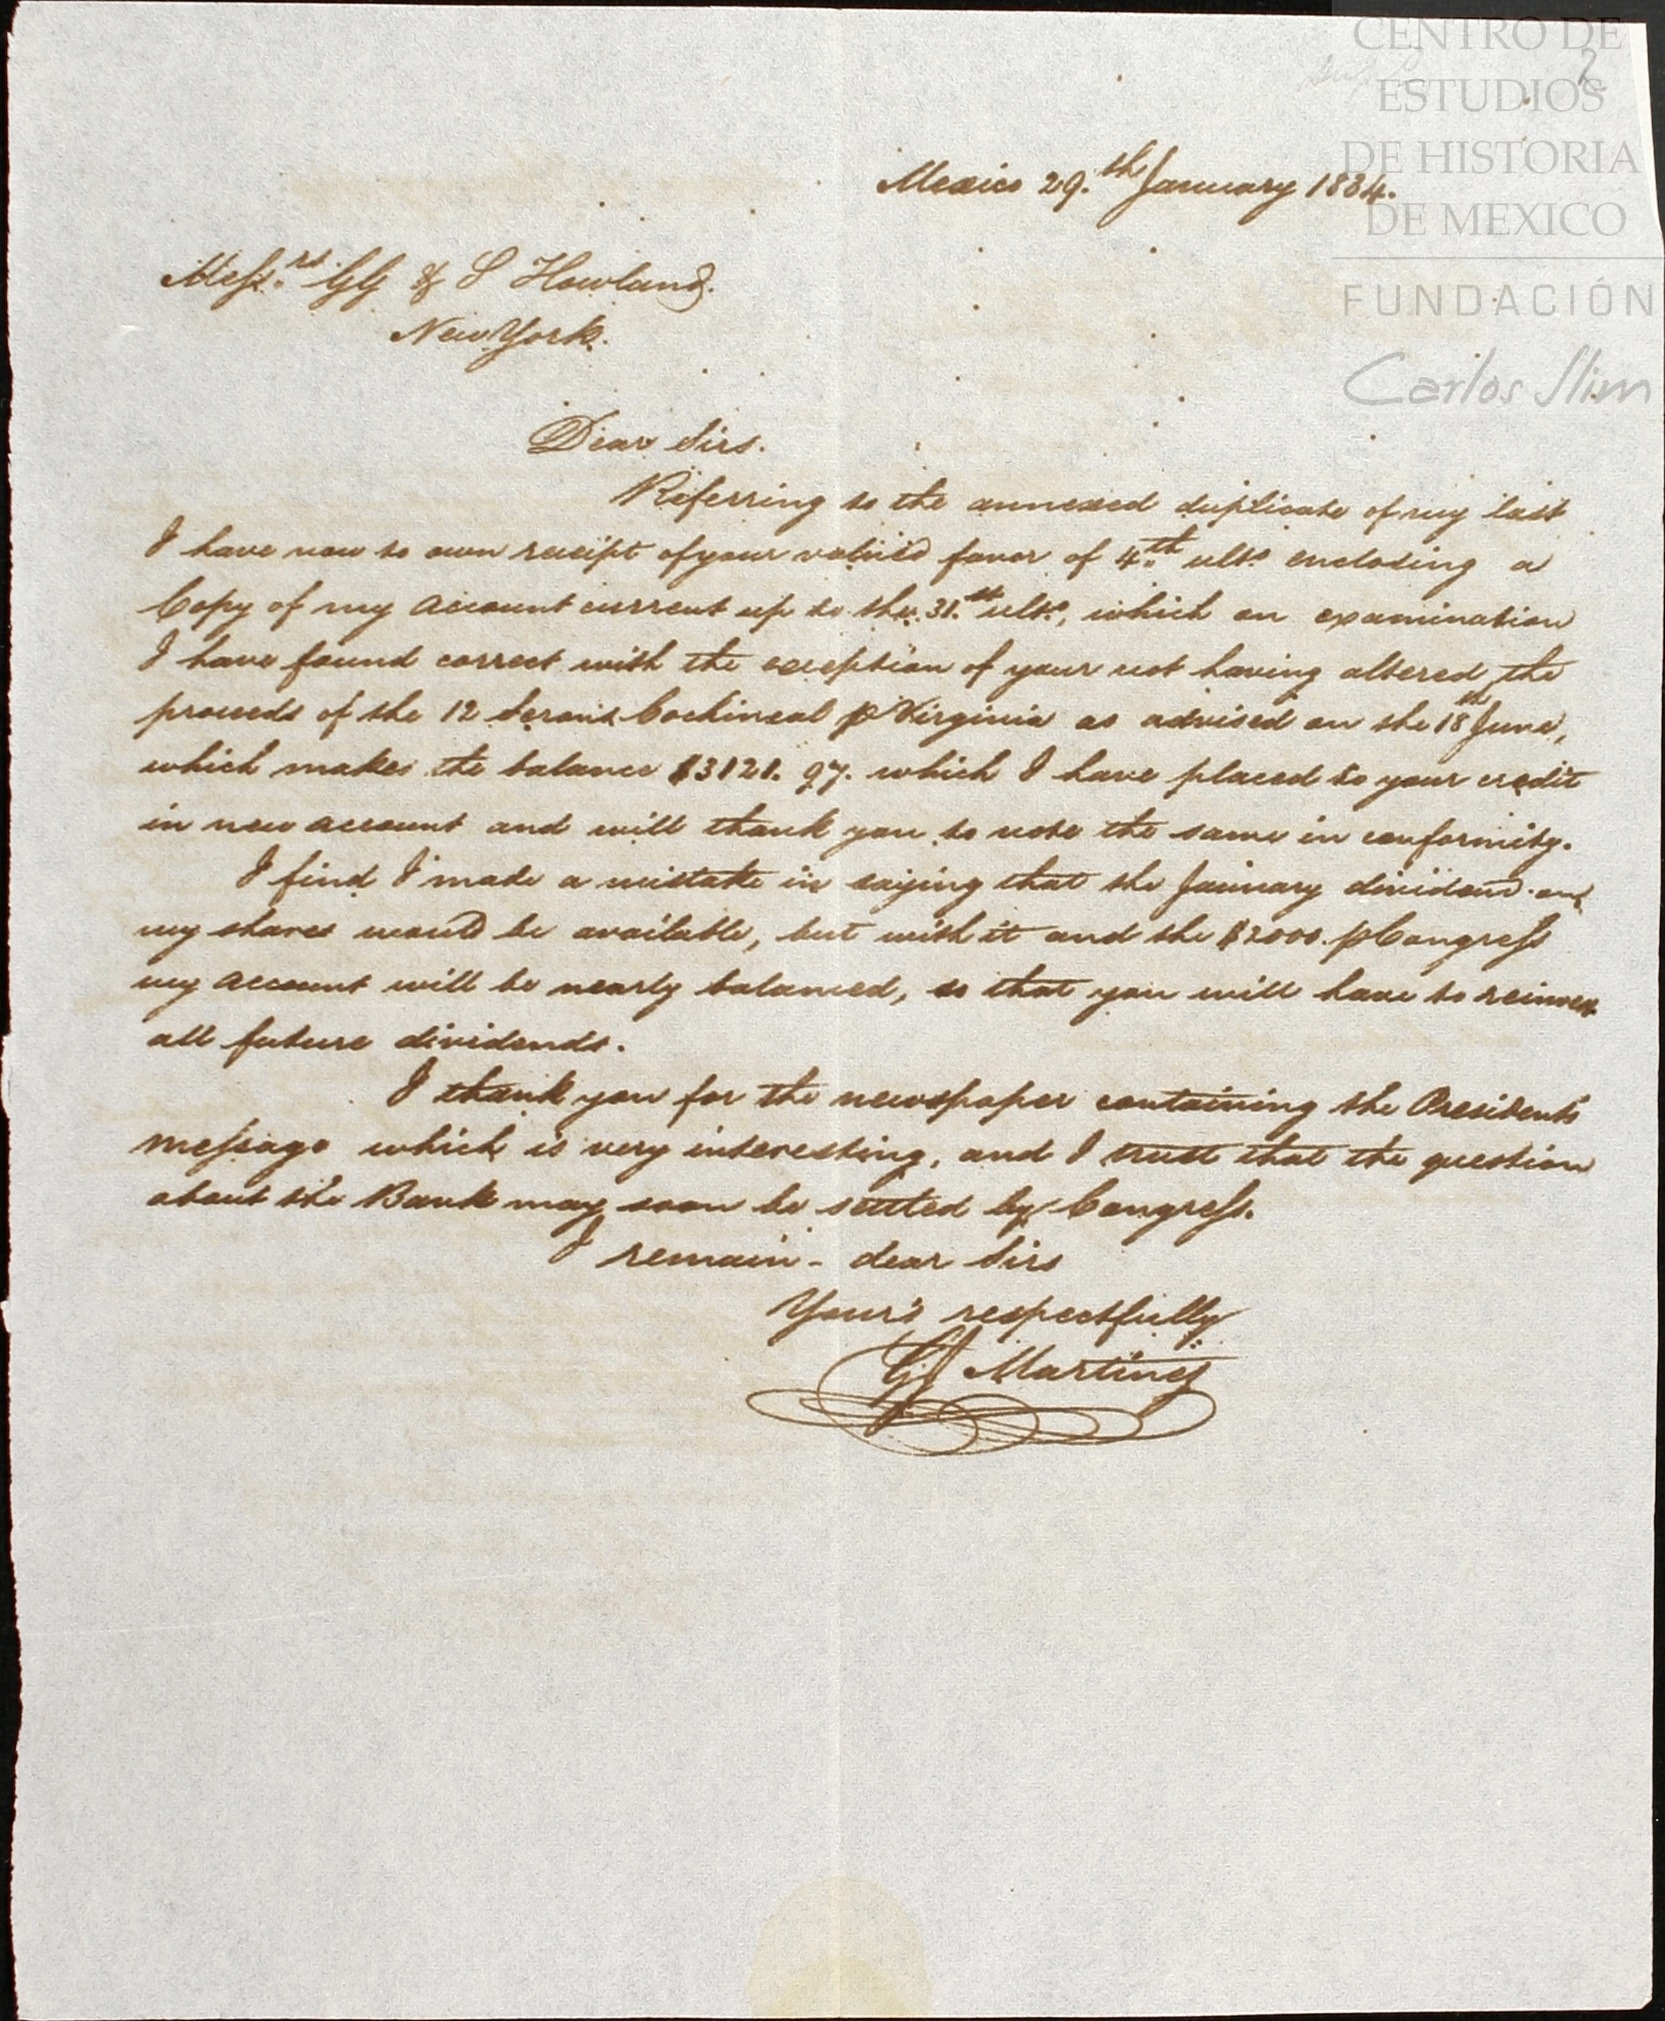 CENTRO DE
ESTUDIOS
DE HISTORIA
DE MEXICO
FUNDACIÓN
Carlos Slim
2
Mexico 29.th January 1834.
Messrs. GG & S Howland.
New York.
Dear Sirs.
Referring to the annexed duplicate of my last
I have now to own receipt of your valued favor of 4th. ulto. enclosing a
Copy of my Account current up to the 31.st ulto., which on examination
I have found correct with the exception of your not having altered the
proceeds of the 12 Serons Cochineal p Virginia as advised on the 18th June,
which makes the balance $3121. 97. which I have placed to your credit
in new account and will thank you to note the same in conformity.
I find I made a mistake in saying that the January dividend on
my shares would be available, but with it and the $2000. p Congress
my account will be nearly balanced, so that you will have to reinvest
all future dividends.
I thank you for the newspaper containing the Presidents
message which is very interesting, and I trust that the question
about the Bank may soon be settled by Congress.
I remain - dear Sirs
Your's respectfully
Martinez